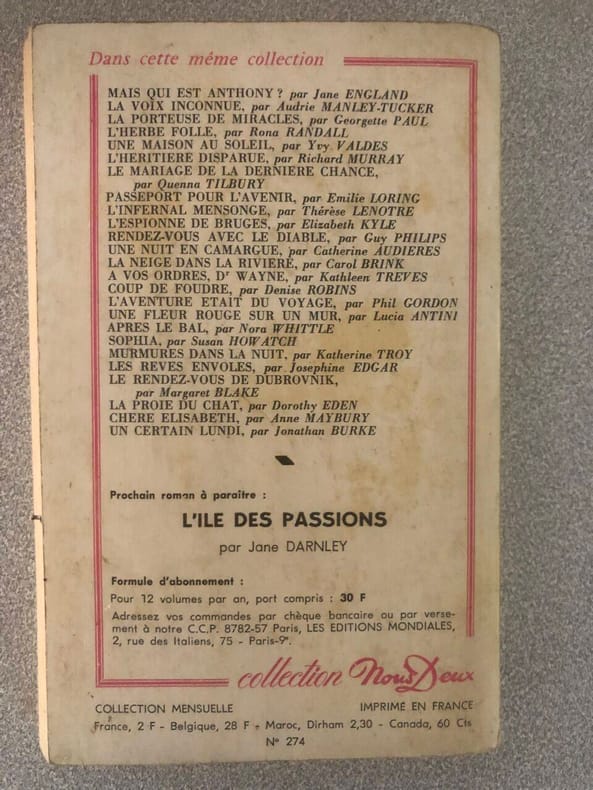 Dans cette même collection
MAIS QUI EST ANTHONY ? par Jane ENGLAND
LA VOIX INCONNUE, par Audrie MANLEY-TUCKER
LA PORTEUSE DE MIRACLES, par Georgette PAUL
L'HERBE FOLLE, par Rona RANDALL
UNE MAISON AU SOLEIL, par Yvy VALDES
L'HERITIERE DISPARUE, par Richard MURRAY
LE MARIAGE DE LA DERNIERE CHANCE,
par Quenna TILBURY
PASSEPORT POUR L'AVENIR, par Emilie LORING
L'INFERNAL MENSONGE, par Thérèse LENOTRE
L'ESPIONNE DE BRUGES, par Elizabeth KYLE
RENDEZ-VOUS AVEC LE DIABLE, par Guy PHILIPS
UNE NUIT EN CAMARGUE, par Catherine AUDIERES
LA NEIGE DANS LA RIVIERE, par Carol BRINK
A VOS ORDRES, Dr WAYNE, par Kathleen TREVES
COUP DE FOUDRE, par Denise ROBINS
L'AVENTURE ETAIT DU VOYAGE, par Phil GORDON
UNE FLEUR ROUGE SUR UN MUR, par Lucia ANTINI
APRES LE BAL, par Nora WHITTLE
SOPHIA, par Susan HOWATCH
MURMURES DANS LA NUIT, par Katherine TROY
LES REVES ENVOLES, par Josephine EDGAR
LE RENDEZ-VOUS DE DUBROVNIK,
par Margaret BLAKE
LA PROIE DU CHAT, par Dorothy EDEN
CHERE ELISABETH, par Anne MAYBURY
UN CERTAIN LUNDI, par Jonathan BURKE
Prochain roman à paraître :
L'ILE DES PASSIONS
par Jane DARNLEY
Formule d'abonnement :
Pour 12 volumes par an, port compris : 30 F
Adressez vos commandes par chèque bancaire ou par verse-
ment à notre C.C.P. 8782-57 Paris, LES EDITIONS MONDIALES,
2, rue des Italiens, 75 - Paris-9e.
collection Nous Deux
COLLECTION MENSUELLE IMPRIMÉ EN FRANCE
France, 2 F - Belgique, 28 F - Maroc, Dirham 2,30 - Canada, 60 Cts
N° 274